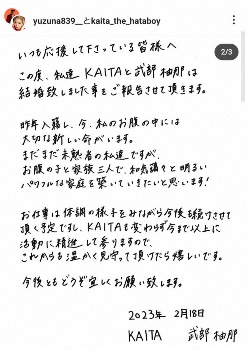 yuzuna839__とkaita_the_hataboy
2/3
いつも応援して下さっている皆様へ
この度、私達 KAITAと武部柚那は
結婚致しました事をご報告させて頂きます。
昨年入籍し、今、私のお腹の中には
大切な新しい命がいます。
まだまだ未熟者の私達ですが、
お腹の子と家族三人で、和気藹々と明るい
パワフルな家庭を築いていきたいと思います!
お仕事は体調の様子をみながら今後も続けさせて
頂く予定ですし、KAITAも変わらず今まで以上に
活動に精進して参りますので、
これからも温かく見守って頂けたら嬉しいです。
今後ともどうぞ宜しくお願い致します。
2023年 2月18日
KAITA 武部柚那